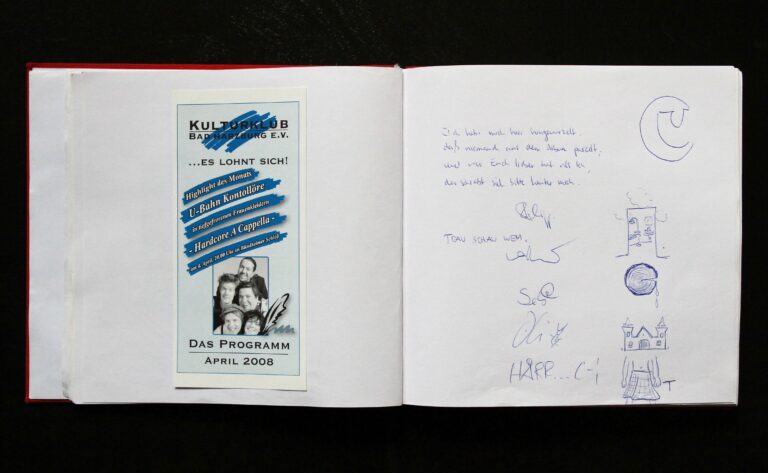 KULTURKLUB
BAD HARZBURG E.V.
...ES LOHNT SICH!
Highlight des Monats
U-Bahn Kontollöre
in tiefgefrorenen Frauenkleidern
- Hardcore A Cappella -
am 4. April, 20.00 Uhr im Bündheimer Schloß
DAS PROGRAMM
APRIL 2008
Ich habe mich hier
daß niemand aus dem
und was Euch lieber
der schreibt sich bitte hinter mich.
TRAU SCHAU WEM.
HARR...
T